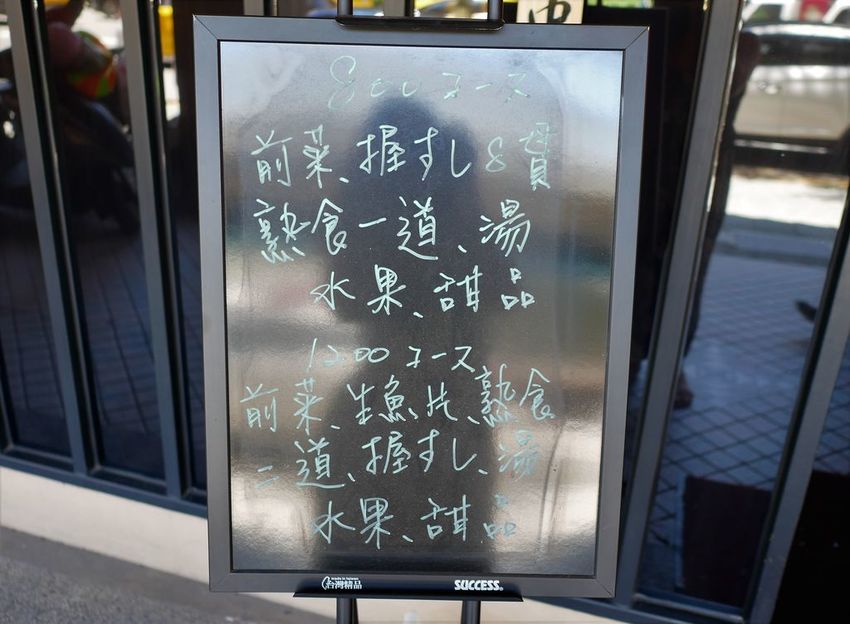 中
800コース
前菜、握すし8貫
熟食一道、湯
水果、甜品
1200コース
前菜、生魚片、熟食
二道、握すし、湯
水果、甜品
made in taiwan
台灣精品
SUCCESS®